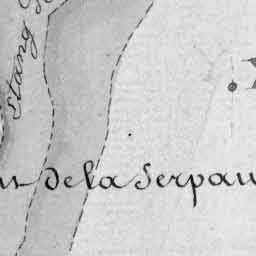 Stang
de la Serpau